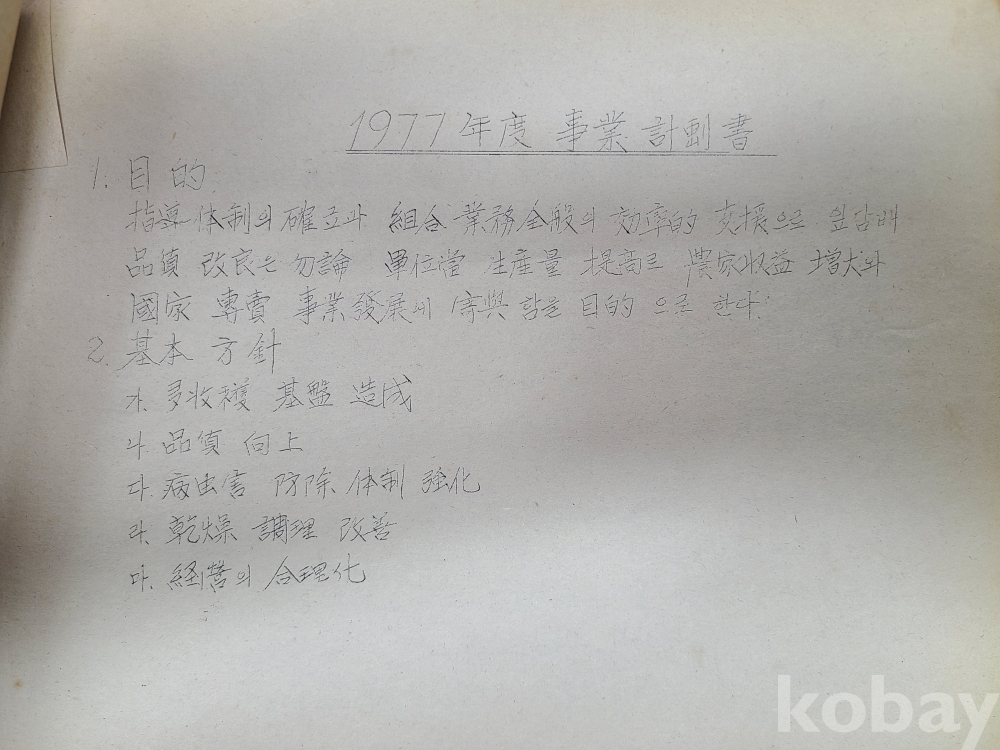 1977 年度 事業 計劃書
1. 目的
指導 体制의 確立과 組合 業務全般의 効率的 支援으로 잎담배
品質 改良은 勿論 單位當 生産量 提高로 農家收益 增大와
國家 專賣 事業發展에 寄與 함을 目的 으로 한다.
2. 基本 方針
가. 多收穫 基盤 造成
나. 品質 向上
다. 病虫害 防除 体制 強化
라. 乾燥 調理 改善
마. 経營의 合理化
kobay